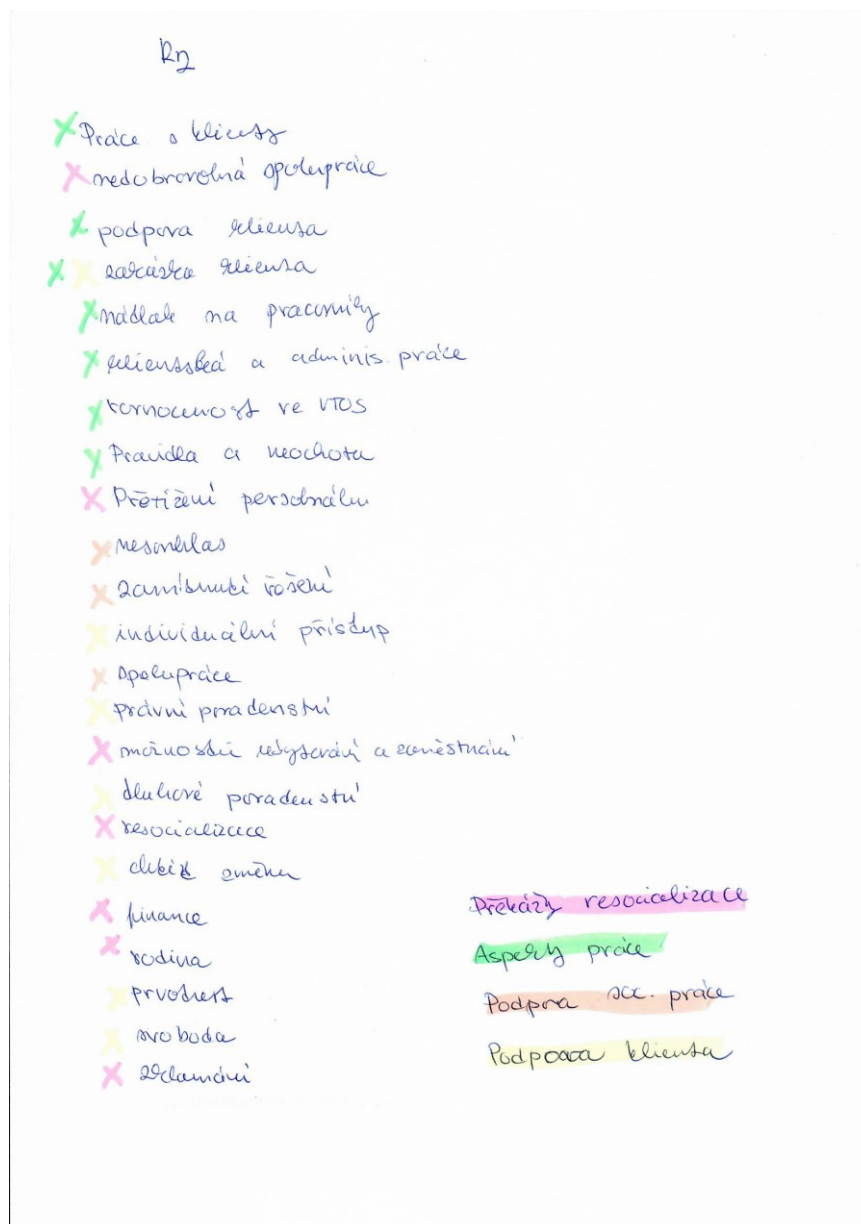 R2
Práce s klienty
nedobrovolná spolupráce
podpora klienta
zakázka klienta
nátlak na pracovníky
klientská a adminis. práce
rovnocennost ve VTOS
Pravidla a neochota
Přetížení personálu
nesouhlas
zamítnutí řešení
individuální přístup
spolupráce
právní poradenství
možnosti ubytování a zaměstnání
dluhové poradenství
resocializace
chtít změnu
finance
rodina
prvotrest
svoboda
zklamání
Překážky resocializace
Aspekty práce
Podpora soc. práce
Podpora klienta